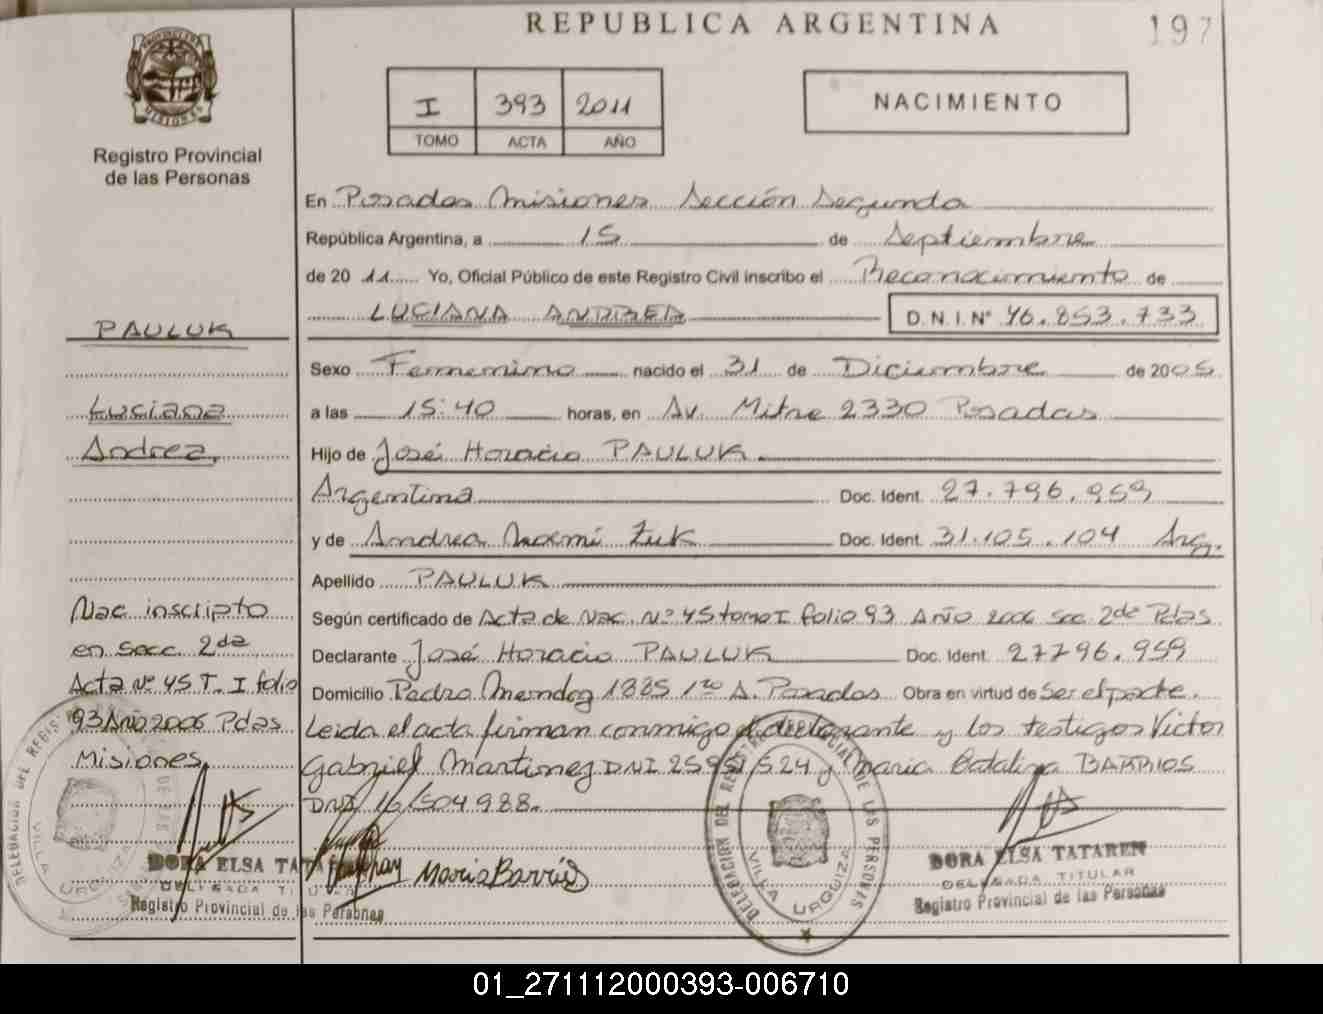 REPUBLICA ARGENTINA
197
PROVINCIA
MISIONES
Registro Provincial
de las Personas
I 393 2011
TOMO ACTA AÑO
NACIMIENTO
En Posadas Misiones Sección Segunda
República Argentina, a 15 de Septiembre
de 20 11 Yo, Oficial Público de este Registro Civil inscribo el Reconocimiento de
LUCIANA ANDREA D.N.I. N° 46.853.733
PAULUK
Sexo Femenino nacido el 31 de Diciembre de 2005
Luciana
a las 15:40 horas, en Av. Mitre 2330 Posadas
Andrea
Hijo de José Horacio PAULUK
Argentina Doc. Ident. 27.796.959
y de Andrea Noemí Zuk Doc. Ident. 31.105.104 Arg.
Apellido PAULUK
Nac inscripto
en secc. 2da
Acta N° 45 T. I folio
93 Año 2006 Pdas
Misiones
Según certificado de Acta de Nac. N° 45 tomo I folio 93 Año 2006 Sec 2da Pdas
Declarante José Horacio PAULUK Doc. Ident. 27796.959
Domicilio Pedro Mendoz 1885 1ro A. Posadas Obra en virtud de Ser el padre.
Leida el acta firman conmigo declarante y los testigos Victor
Gabriel Martinez DNI y Maria Catalina BARRIOS
DNI 16/504988.
Maria Barrios
DORA ELSA TATAREN
DELEGADA TITULAR
Registro Provincial de las Personas
DELEGACION DEL REGISTRO PROVINCIAL DE LAS PERSONAS
VILLA URQUIZA
DORA ELSA TATAREN
DELEGADA TITULAR
Registro Provincial de las Personas
01_271112000393-006710